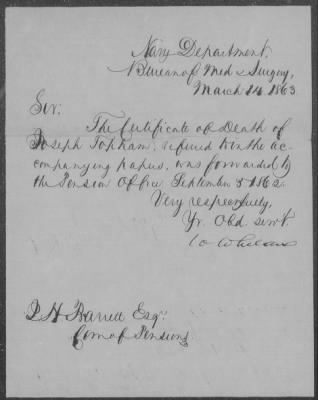 Navy Department.
Bureau of Med & Surgery,
March 14 1863
Sir:
The Certificate of Death of
Joseph Topham, referred to in the ac-
companying papers, was forwarded to
the Pension Office September 3 1862.
Very respectfully,
Yr. Obd. servt.
Whelan
J H Barrett Esqr.
Com of Pensions